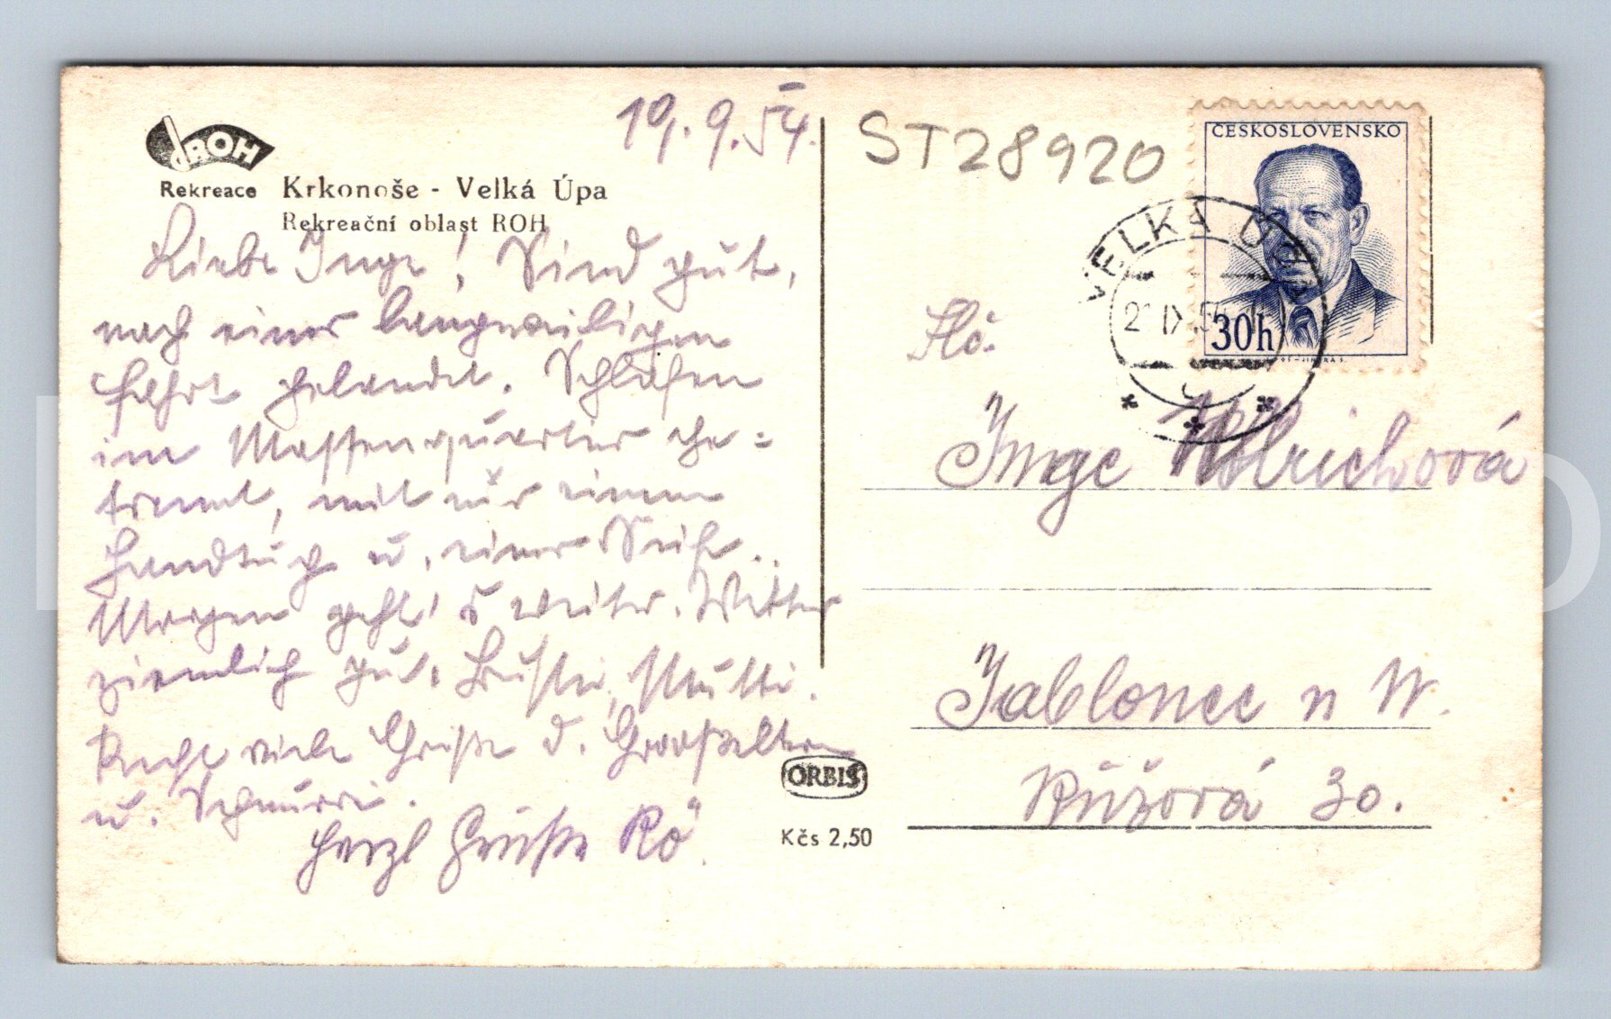 19.9.54.
ST28920
ROH
Rekreace Krkonoše - Velká Úpa
Rekreační oblast ROH
Liebe Inge! Sind gut,
nach einer langweiligen
Fahrt gelandet. Schlafen
im Massenquartier ge=
trennt, mit nur einem
Handtuch u. einer Seife.
Morgen geht's weiter. Wetter
ziemlich gut. Mutti.
Recht viele Grüße d. Großeltern
u. Schnurri.
Herzl Grüße
ČESKOSLOVENSKO
30h
VELKÁ ÚPA
Inge
Jablonec n N.
Růžová 30.
ORBIS
Kčs 2,50